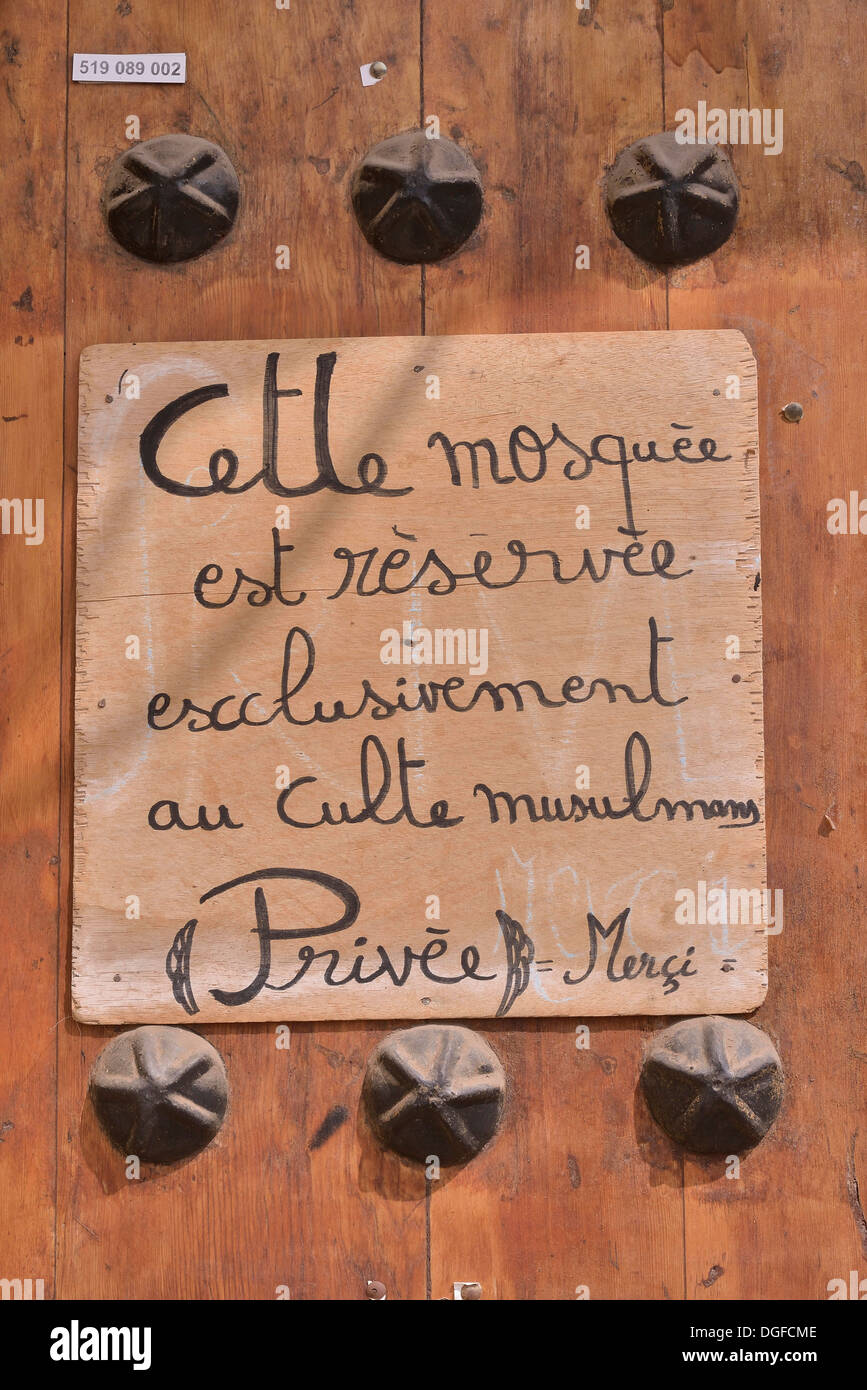 519 089 002
Cette mosquée
est réservée
exclusivement
au culte musulmans
(Privée) = Merçi =
alamy
Image ID: DGFCME
www.alamy.com